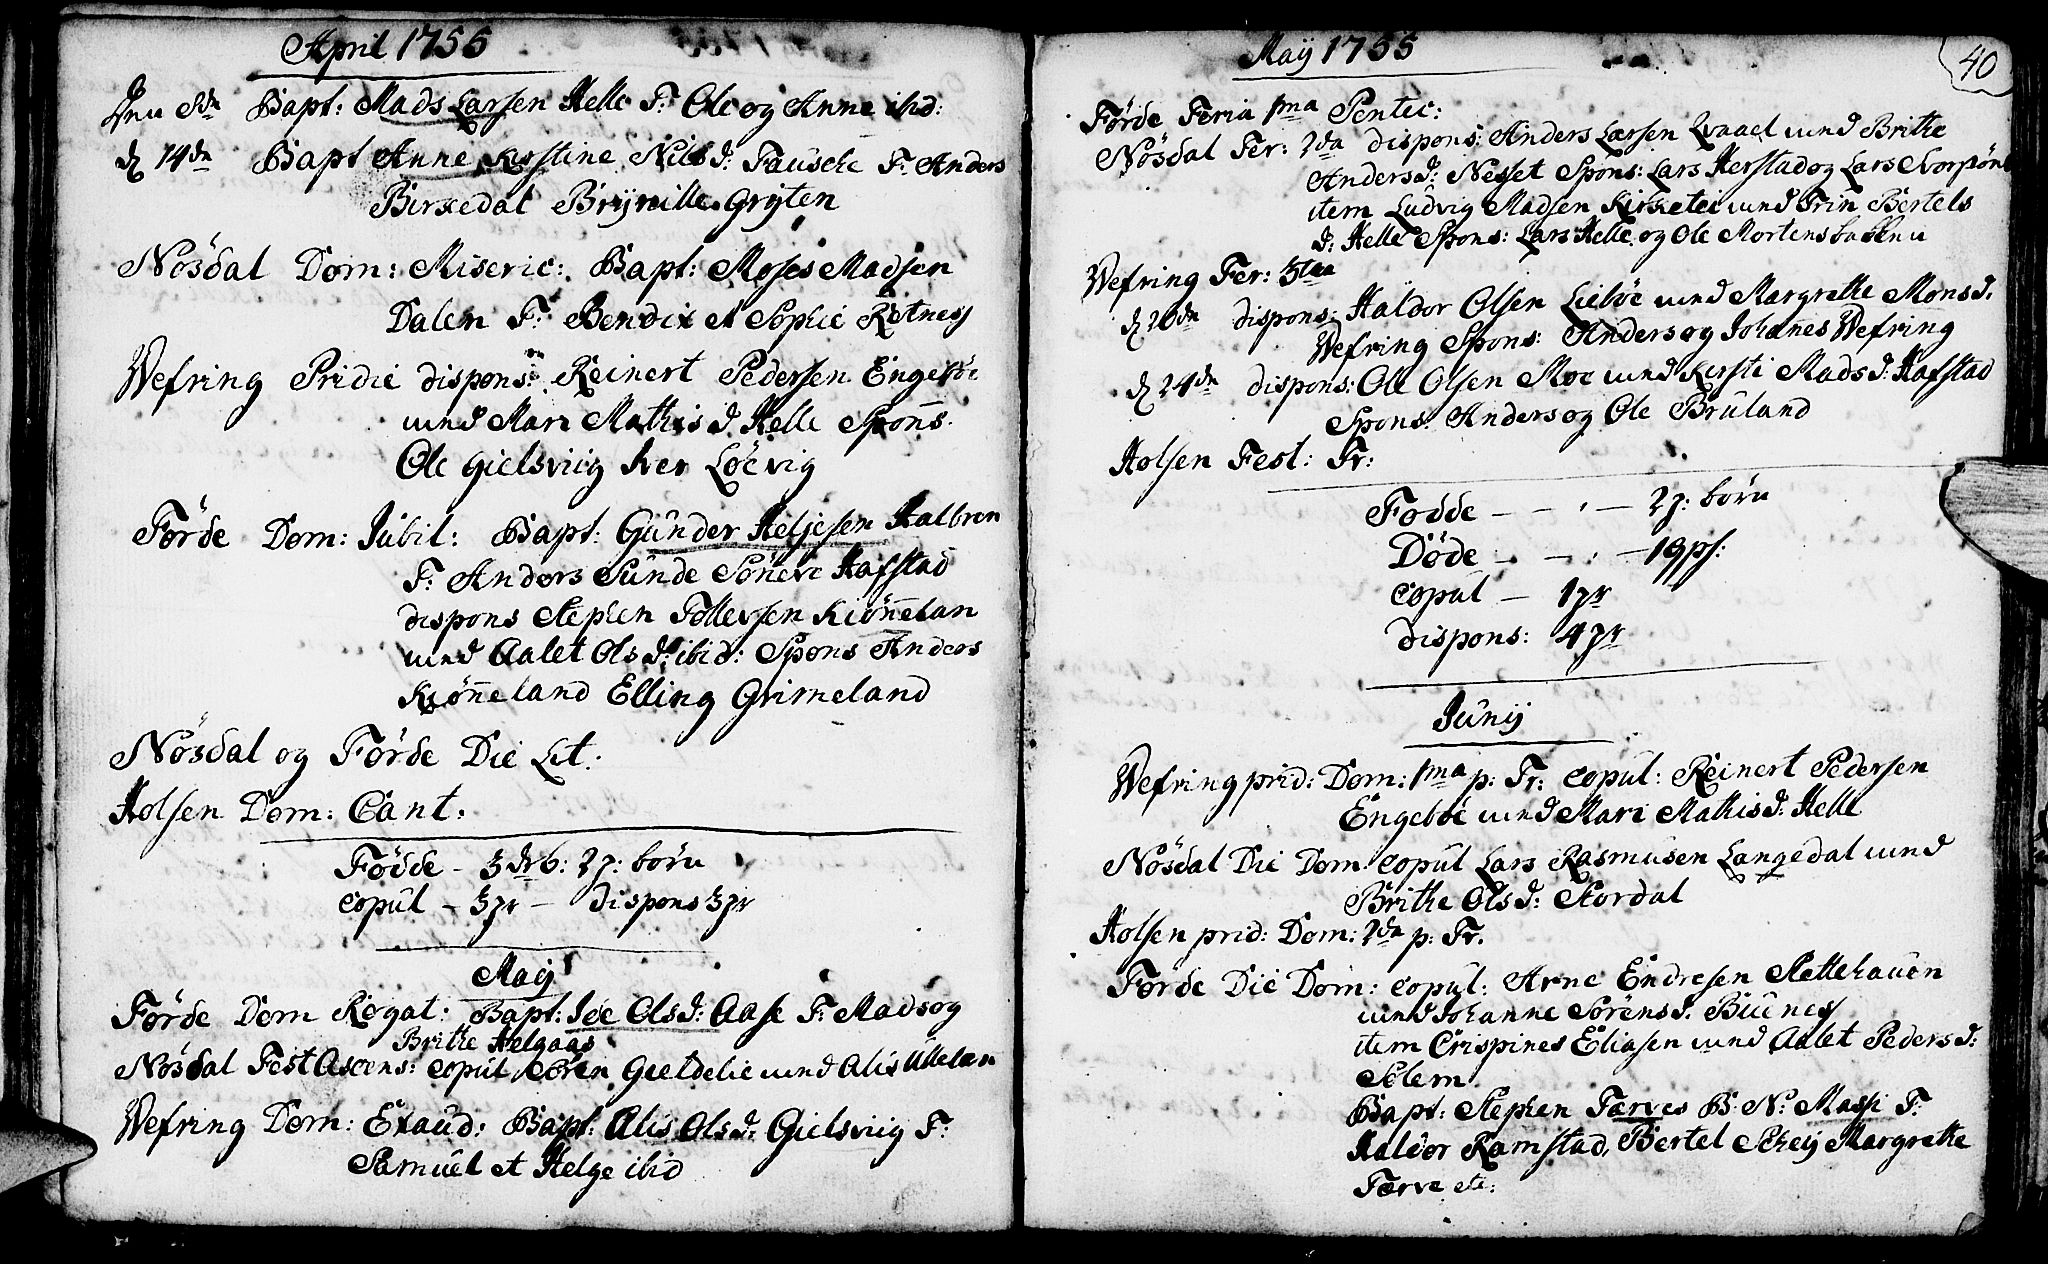 April 1755
Den 8de Bapt: Mads Larsen Helle F. Ole og Anne ibid:
d 14de Bapt Anne Kirstine Nilsd: Fausche F. Anders
Birkedal Brynille Gryten
Nøsdal Dom: Miseric: Bapt: Moses Madsen
Dalen F. Bendix et Sophie Rotnes
Wefring Pridie dispons: Reinert Pedersen Engebøe
und Mari Mathisd Helle Spons.
Ole Gielsviig Iver Løevig
Førde Dom: Jubil: Bapt: Gunder Heljesen Halbren
F. Anders Sunde Søneve Hafstad
dispons Stephen Tollevsen Kiønnelan
und Aalet Olsd: ibid: Spons Anders
Kiønneland Elling Grimeland
Nøsdal og Førde Die Lit:
Holsen Dom: Cant:
Fødde - 3 dr 6: 2 p: børn
copul - 3 pr - dispons 3 pr
Maij
Førde Dom Rogat: Bapt: Ide Olsd: Aase F. Mads og
Brithe Helgaas
Nøsdal Fest Ascens: copul Søren Gietdelie und Alis Ullelan
Wefring Dom: Exaud: Bapt: Alis Olsd: Gielsviig F:
Samuel et Helge ibid
Maij 1755
40
Førde Feria 1ma Pentec:
Nøsdal Fer: 2da dispons: Anders Larsen Qvaael und Brithe
Andersd: Nesset Spons: Lars Herstad og Lars
item Ludvig Madsen Kirketei und Trin Bertels
d: Helle Spons: Lars Helle og Ole Mortensbakken
Wefring Fer: 3tia
d 20de dispons: Haldor Olsen Liebøe und Margrethe Monsd.
Wefring Spons: Anders og Johannes Wefring
d 24de dispons: Ole Olsen Moe und Kirsti Madsd: Hafstad
Spons. Anders og Ole Bruland
Holsen Fest: Tr:
Fødde - - - 2 p: børn
Døde - - - 19 ps:
copul - 1 pr
dispons: 4 pr
Junij
Wefring prid: Dom: 1ma p: Tr: copul: Reinert Pedersen
Engebøe und Mari Mathisd: Helle
Nøsdal Die Dom copul Lars Rasmusen Langedal und
Brithe Olsd: Stordal
Holsen prid: Dom: 2da p: Tr.
Førde Die Dom: copul: Arne Endresen Slettehauen
und Johanne Sørensd. Biunes
item Crispines Eliasen und Aalet Pedersd:
Solem
Bapt: Stephen Færves B. N. Massi F.
Haldor Ramstad, Bertel Schey Margrethe
Færve etc: